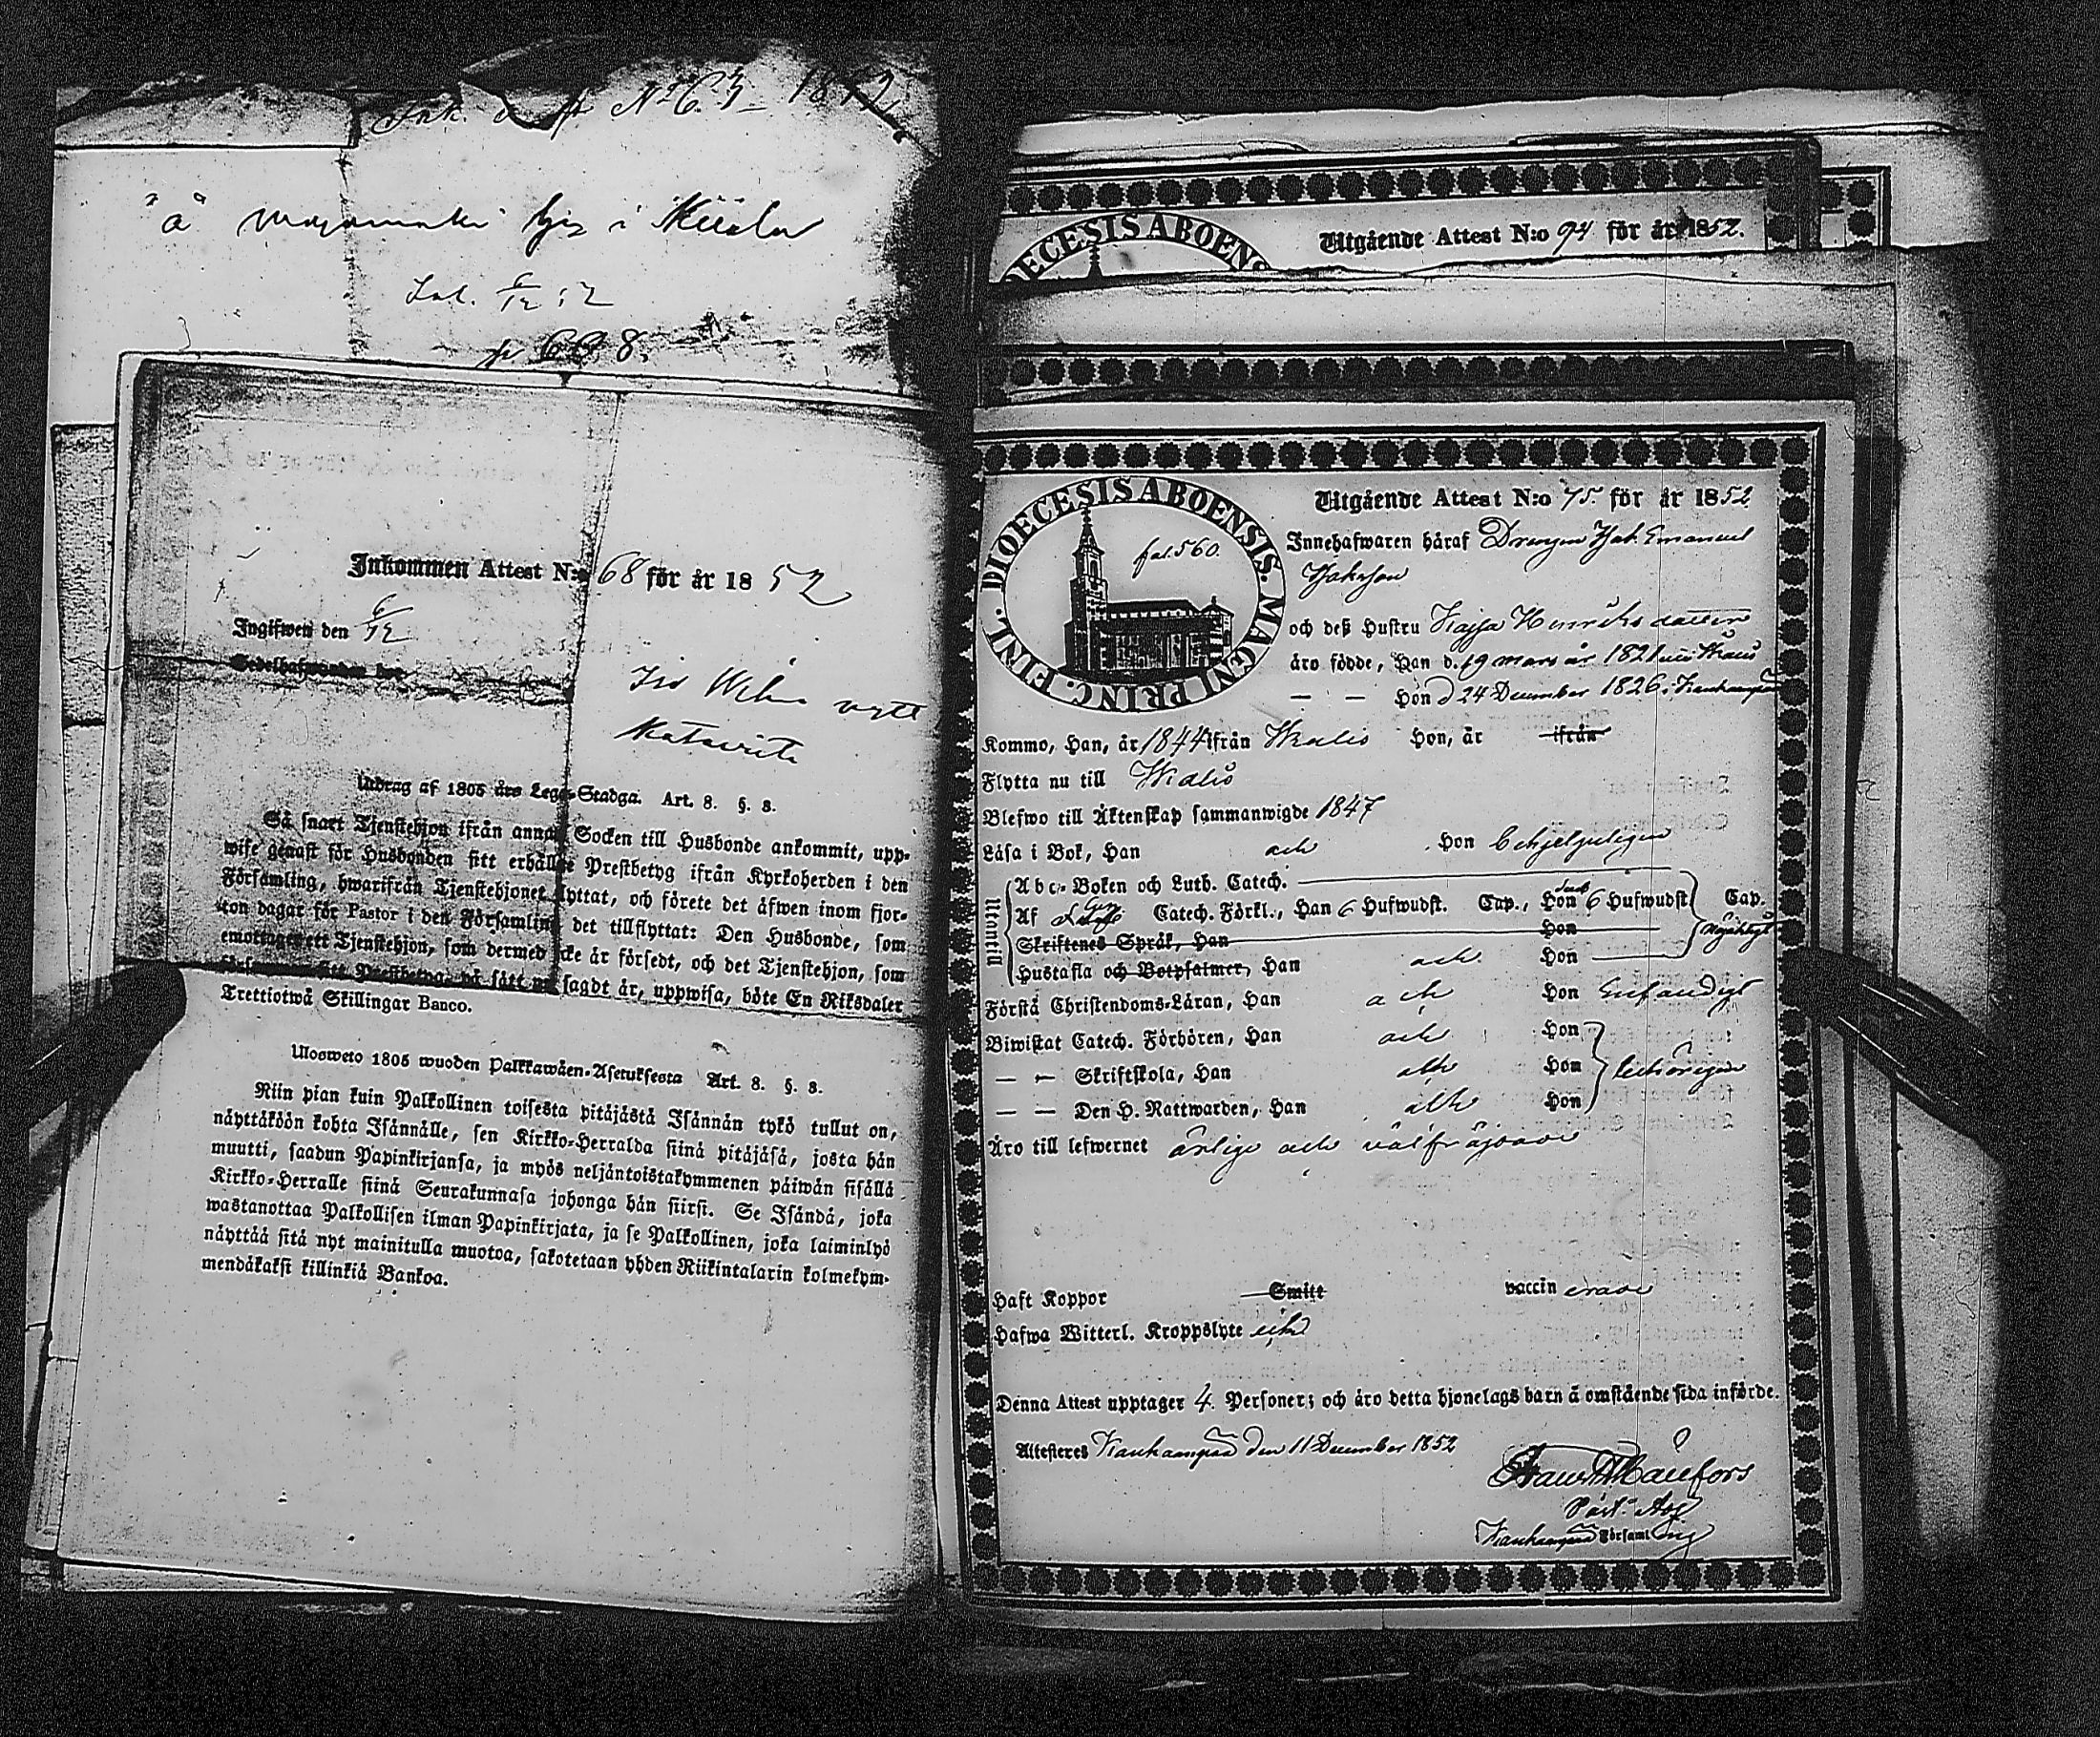 Ink. N:o 67 1852
"a"
i
Ink. 6/12 52
p 698.
Inkommen Attest N:o 68 för år 1852
Ingifwen den 6/12
Sedelhafwanden bor
Utdrag af 1805 års Lego-Stadga. Art. 8. §. 8.
Så snart Tjenstehjon ifrån annan Socken till Husbonde ankommit, upp-
wise genast för Husbonden sitt erhållne Prestbetyg ifrån Kyrkoherden i den
Församling, hwarifrån Tjenstehjonet flyttat, och förete det äfwen inom fjor-
ton dagar för Pastor i den Församling det tillflyttat: Den Husbonde, som
emottager ett Tjenstehjon, som dermed icke är försedt, och det Tjenstehjon, som
sitt Prestbetyg, på sätt nu sagdt är, uppwisa, böte En Riksdaler
Trettiotwå Skillingar Banco.
Ulosweto 1805 wuoden Palkkawäen-Asetuksesta Art. 8. §. 8.
Niin pian kuin Palkollinen toisesta pitäjästä Isännän tykö tullut on,
näyttäköön kohta Isännälle, sen Kirkko-Herralda siinä pitäjäsä, josta hän
muutti, saadun Papinkirjansa, ja myös neljäntoistakymmenen päiwän sisällä
Kirkko-Herralle siinä Seurakunnasa johonga hän siirsi. Se Isändä, joka
wastanottaa Palkollisen ilman Papinkirjata, ja se Palkollinen, joka laiminlyö
näyttää sitä nyt mainitulla muotoa, sakotetaan yhden Riikintalarin kolmekym-
mendäkaksi killinkiä Bankoa.
DIOECESIS ABOENS
Utgående Attest N:o 94 för år 1852.
DIOECESIS ABOENSIS. MAGNI PRINC. FINL.
fol. 560.
Utgående Attest N:o 75. för år 1852
Innehafwaren häraf Drengen Joh. Emanuel
Johnson
och deß Hustru Kajsa Henriksdotter
äro födde, Han d. 19 mars år 1821
— — Hon d 24 December 1826 i Kauhajoki
Kommo, Han, år 1844 ifrån Hon, år ifrån
Flytta nu till
Blefwo till Äktenskap sammanwigde 1847
Läsa i Bok, Han och Hon behjelpligen
Utantill
Abc-Boken och Luth. Catech.
Af Catech. Förkl., Han 6 Hufwudst. Cap., Hon 6 Hufwudst. Cap.
Skriftenes Språk, Han Hon nöjaktigt
Hustafla och Botpsalmer, Han och Hon
Förstå Christendoms-Läran, Han och Hon Enfaldigt
Biwistat Catech. Förhören, Han och Hon
— — Skriftskola, Han och Hon behörigen
— — Den H. Nattwarden, Han och Hon
Äro till lefwernet ärlige och välfräjdade
Haft Koppor Smitt vaccinerade
Hafwa Witterl. Kroppslyte icke
Denna Attest upptager 4. Personer; och äro detta hjonelags barn å omstående sida införde.
Attesteres den 11 December 1852
Församling